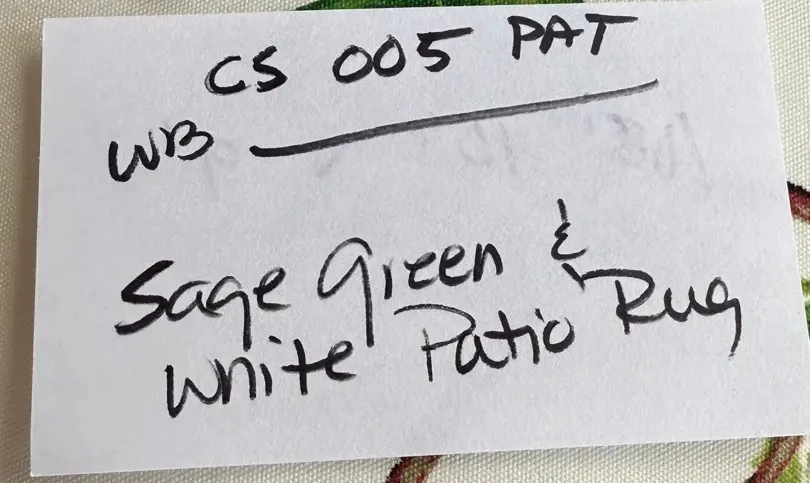 CS 005 PAT
WB
Sage Green &
White Patio Rug